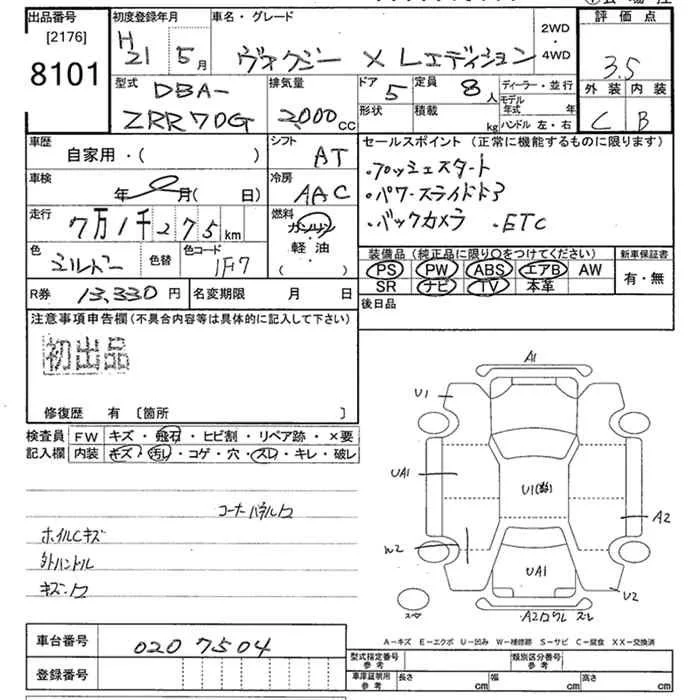 出品番号
[2176]
8101
初度登録年月
H 21 5月
車名・グレード
ヴォクシー X Lエディション
2WD
4WD
評価点
3.5
外装 内装
C B
型式
DBA-
ZRR70G
排気量
2,000 cc
ドア 5
形状
定員 8人
積載 kg
ディーラー・並行
モデル年式 年
ハンドル 左・右
車歴
自家用・( )
シフト
AT
車検
年 月( 日)
冷房
AAC
走行
7万1千275km
燃料
ガソリン
軽油
( )
色
シルバー
色替
色コード
1F7
R券 13,330円
名変期限 月 日
セールスポイント(正常に機能するものに限ります)
・プッシュスタート
・パワースライドドア
・バックカメラ ・ETC
装備品(純正品に限り○をつけてください)
PS PW ABS エアB AW
SR ナビ TV 本革
新車保証書
有・無
後日品
注意事項申告欄(不具合内容等は具体的に記入して下さい)
初出品
修復歴 有 〔箇所 〕
検査員
記入欄
FW キズ・飛石・ヒビ割・リペア跡・×要
内装 キズ・汚レ・コゲ・穴・スレ・キレ・破レ
コーナーパネルワ
ホイルCキズ
外ハンドル
キズ・ワ
A1
U1
UA1
U1
A2
W2
UA1
U2
A2ワレ ズレ
A-キズ E-エクボ U-凹み W-補修跡 S-サビ C-腐食 XX-交換済
車台番号
020 7504
登録番号
型式指定番号
参考
類別区分番号
参考
車庫証明用
参考
長さ cm
幅 cm
高さ cm